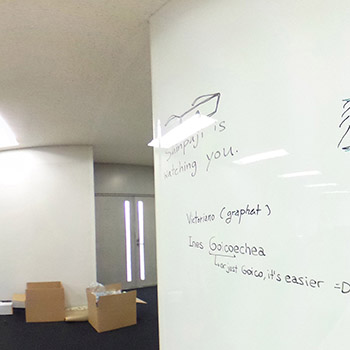 Sanpuji is
watching you.
Victoriano (graphat)
Ines Goicoechea
or just Goico, it's easier =D